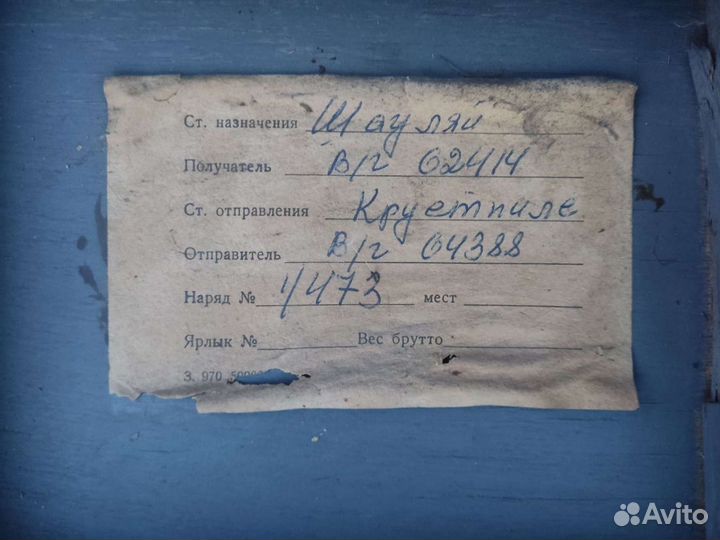 Ст. назначения Шауляй
Получатель В/г 62414
Ст. отправления Крустпилс
Отправитель В/г 64388
Наряд № 1/473 мест
Ярлык № Вес брутто
З. 970
Avito